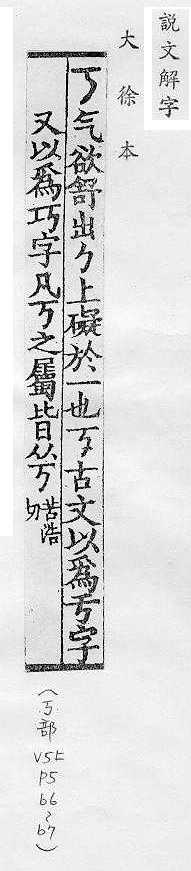 説文解字
大徐本
丂气欲舒出ㄅ上礙於一也丂古文以爲亏字
又以爲巧字凡丂之屬皆从丂
苦浩
切
(丂部
V5上
P5
b6
~
b7)